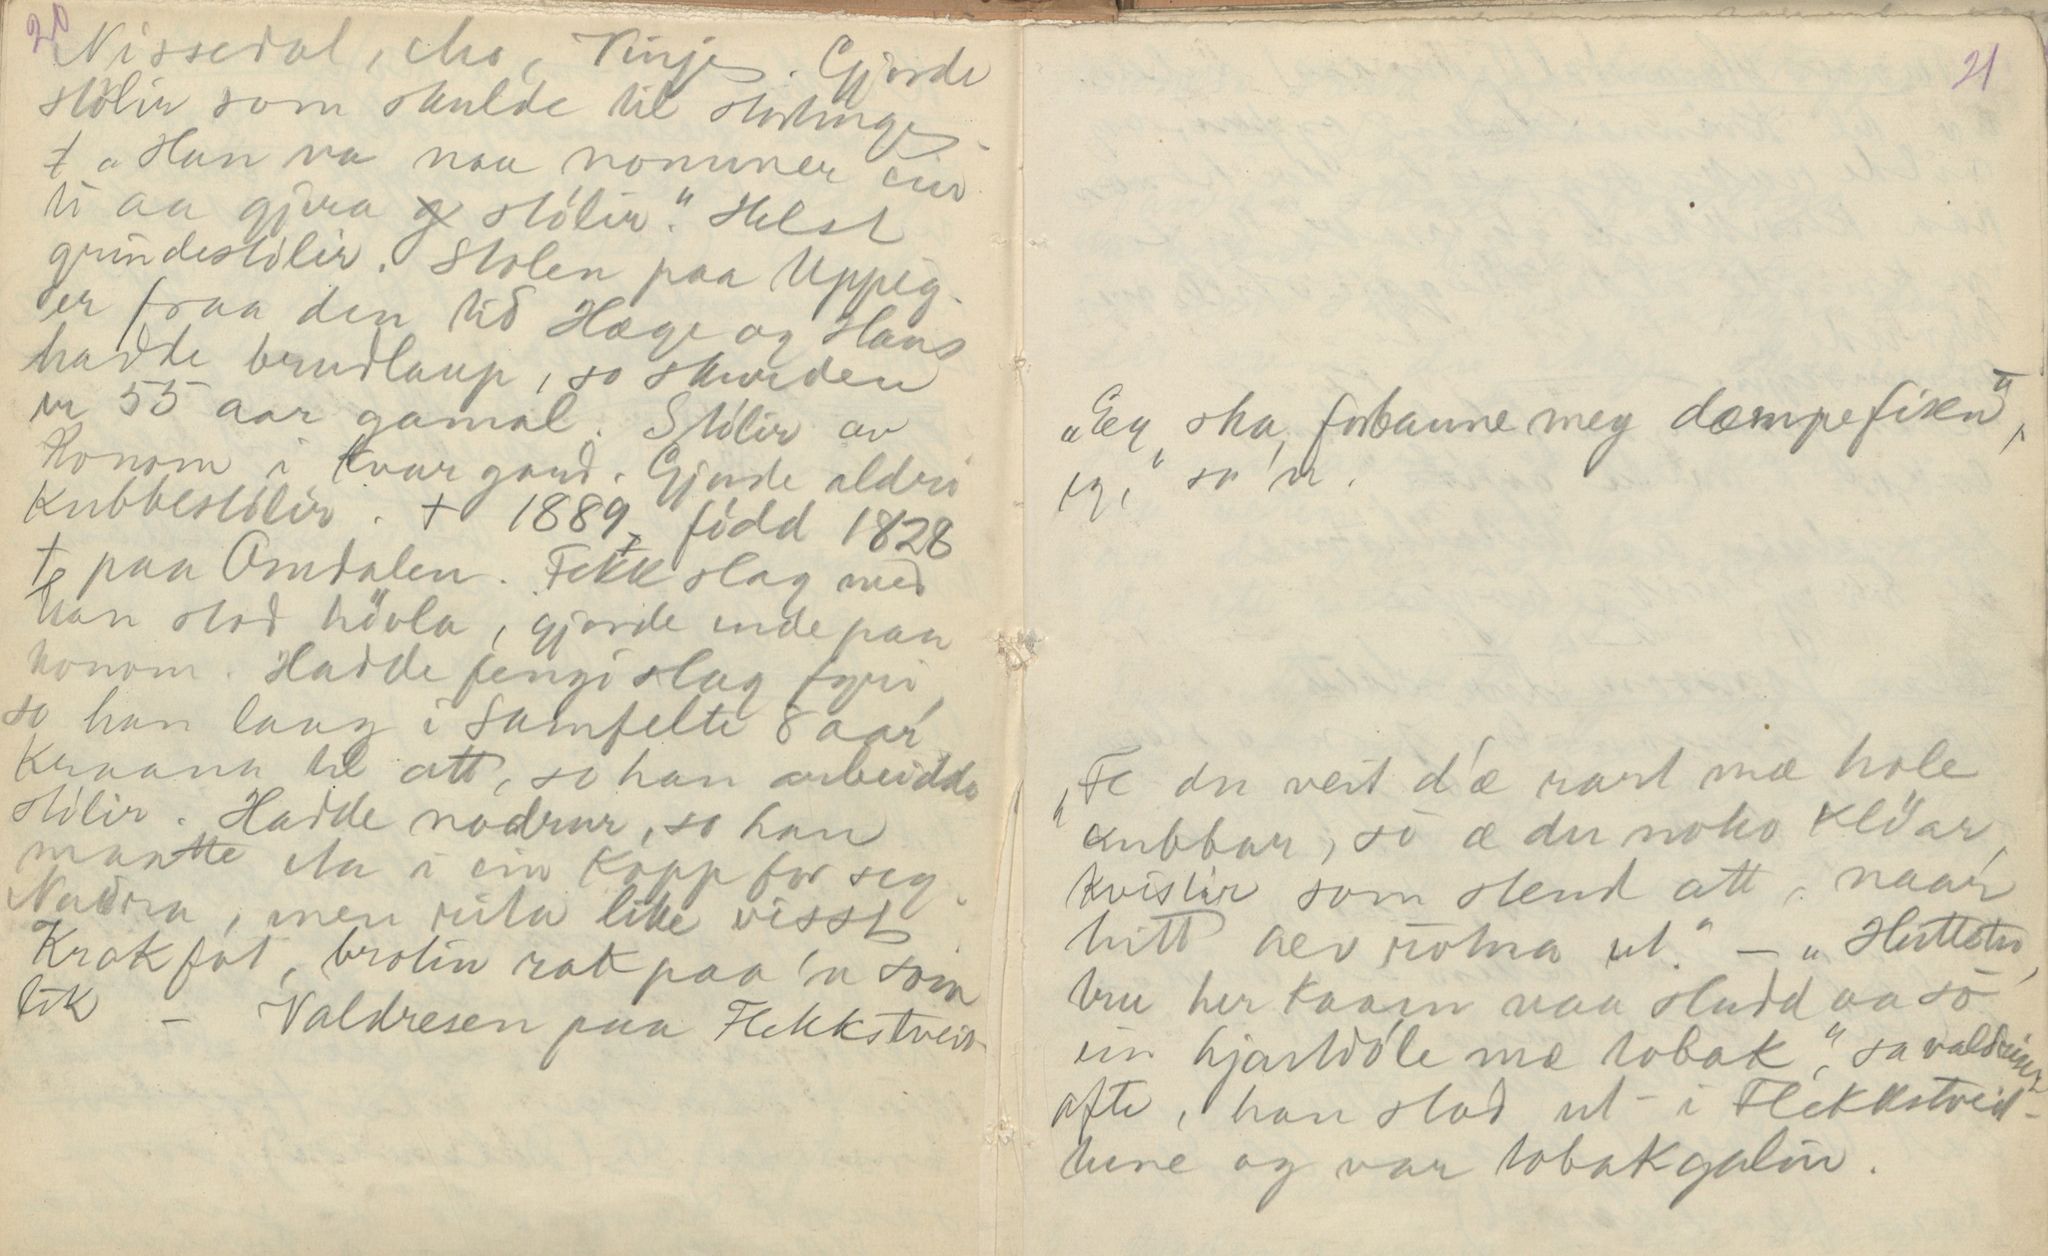 20
Nissedal, Mo, Vinje. Gjorde
stólir som skulde til stortinge
t „Han va naa nommer ein
ti aa gjera stólir." Helst
grindestólir. Stolen paa Uppig.
er fraa den tid Hæge og Hans
hadde brudlaup, so skurden
er 55 aar gamal. Stólir av
honom i kvar gard. Gjorde aldri
Kubbestólir. † 1889, född 1828
† paa Omdalen. Fekk slag med
han stod hövla, gjorde ende paa
honom. Hadde fengi slag fyrr,
so han laag i Samfelte 8 aar
Kraana til att, so han arbeidde
stólir. Hadde nodrur, so han
maatte ha i ein Kopp for seg.
Naudra, men rita like visst
Krokfot, brotin rak paa 'n som
lik – Valdresen paa Flekkstveit
21
„Eg ska, forbanne meg dæmpe fisen",
eg," sa 'n.
„Fe du veit d'æ rart mæ hole
Kubbar, so æ du noko Klöar,
Kvistir som stend att, naar
hitt aev rotna ut." –
bru her Kaam naa studd aa so
ein hjartdöle mæ tobak," sa valdrisen
ofte, han stod ut i Flekkstveid-
tune og var tobakgalin.